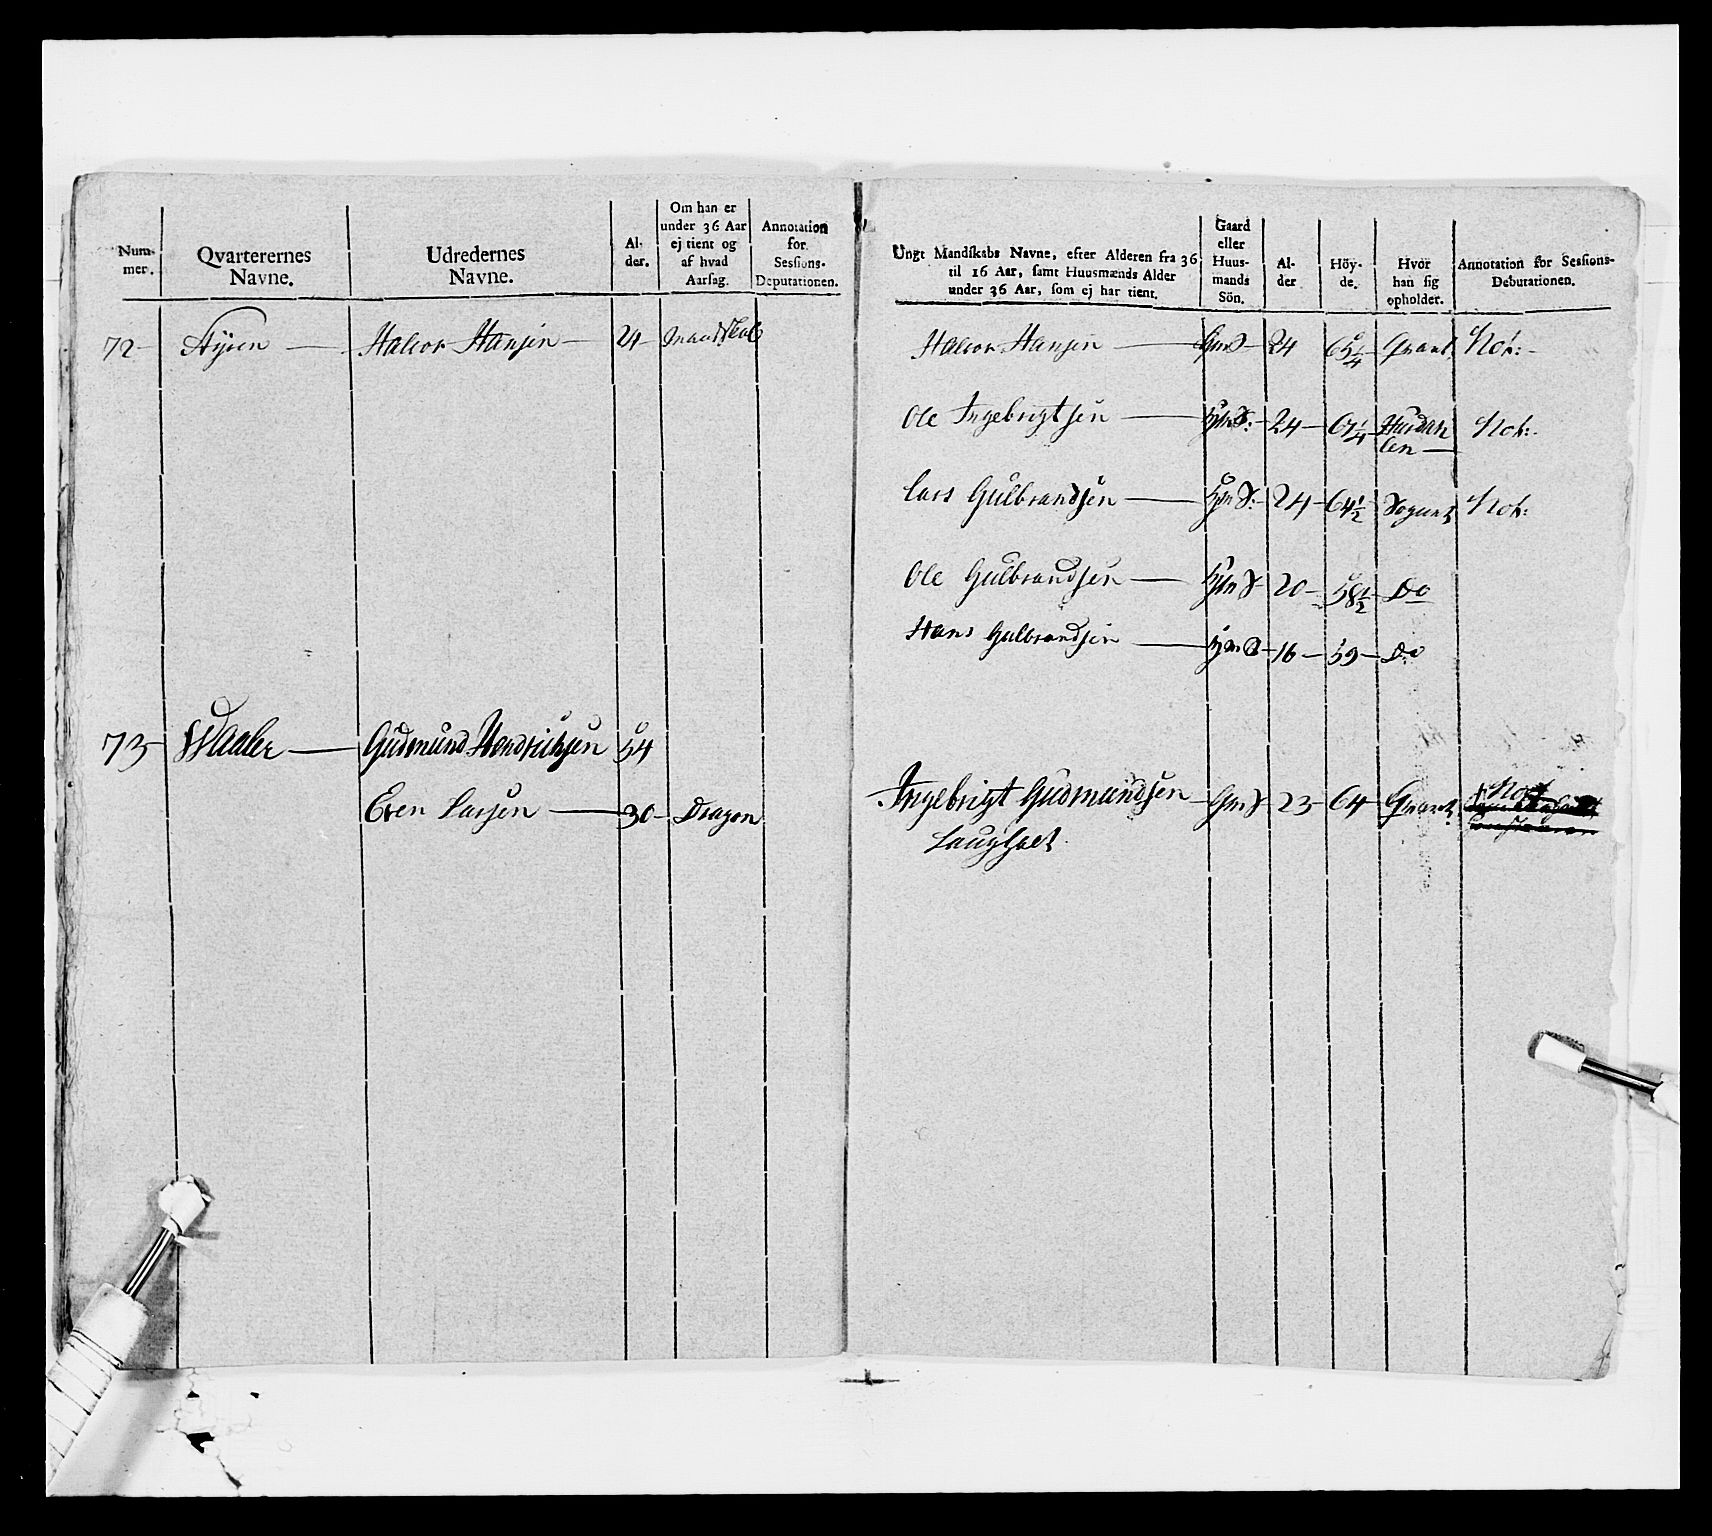 Num-
mer.
Qvarterernes
Navne.
Udredernes
Navne.
Al-
der.
Om han er
under 36 Aar
ej tient og
af hvad
Aarsag.
Annotation
for
Sessions-
Deputationen.
72 Halvor Hansen 24 Mandskab
73 Waaler Gudmund Hendrichsen 54
Even Larsen 30 Dragon
Ungt Mandskabs Navne, efter Alderen fra 36
til 16 Aar, samt Huusmænds Alder
under 36 Aar, som ej har tient.
Gaard
eller
Huus-
mands
Sön.
Al-
der
Höy-
de.
Hvor
han sig
opholder.
Annotation for Sessions-
Debutationen.
Halvor Hansen GmS 24 Not:
Ole Ingebrigtsen HmS: 24 67¼ Hurdah
len Not:
Lars Gulbrandsen HmS: 24 64½ Sognet Not:
Ole Gulbrandsen HmS 20 58½ Do
Hans Gulbrandsen HmS 16 59 Do
Ingebrigt Gudmundsen GmS 23 64 Not